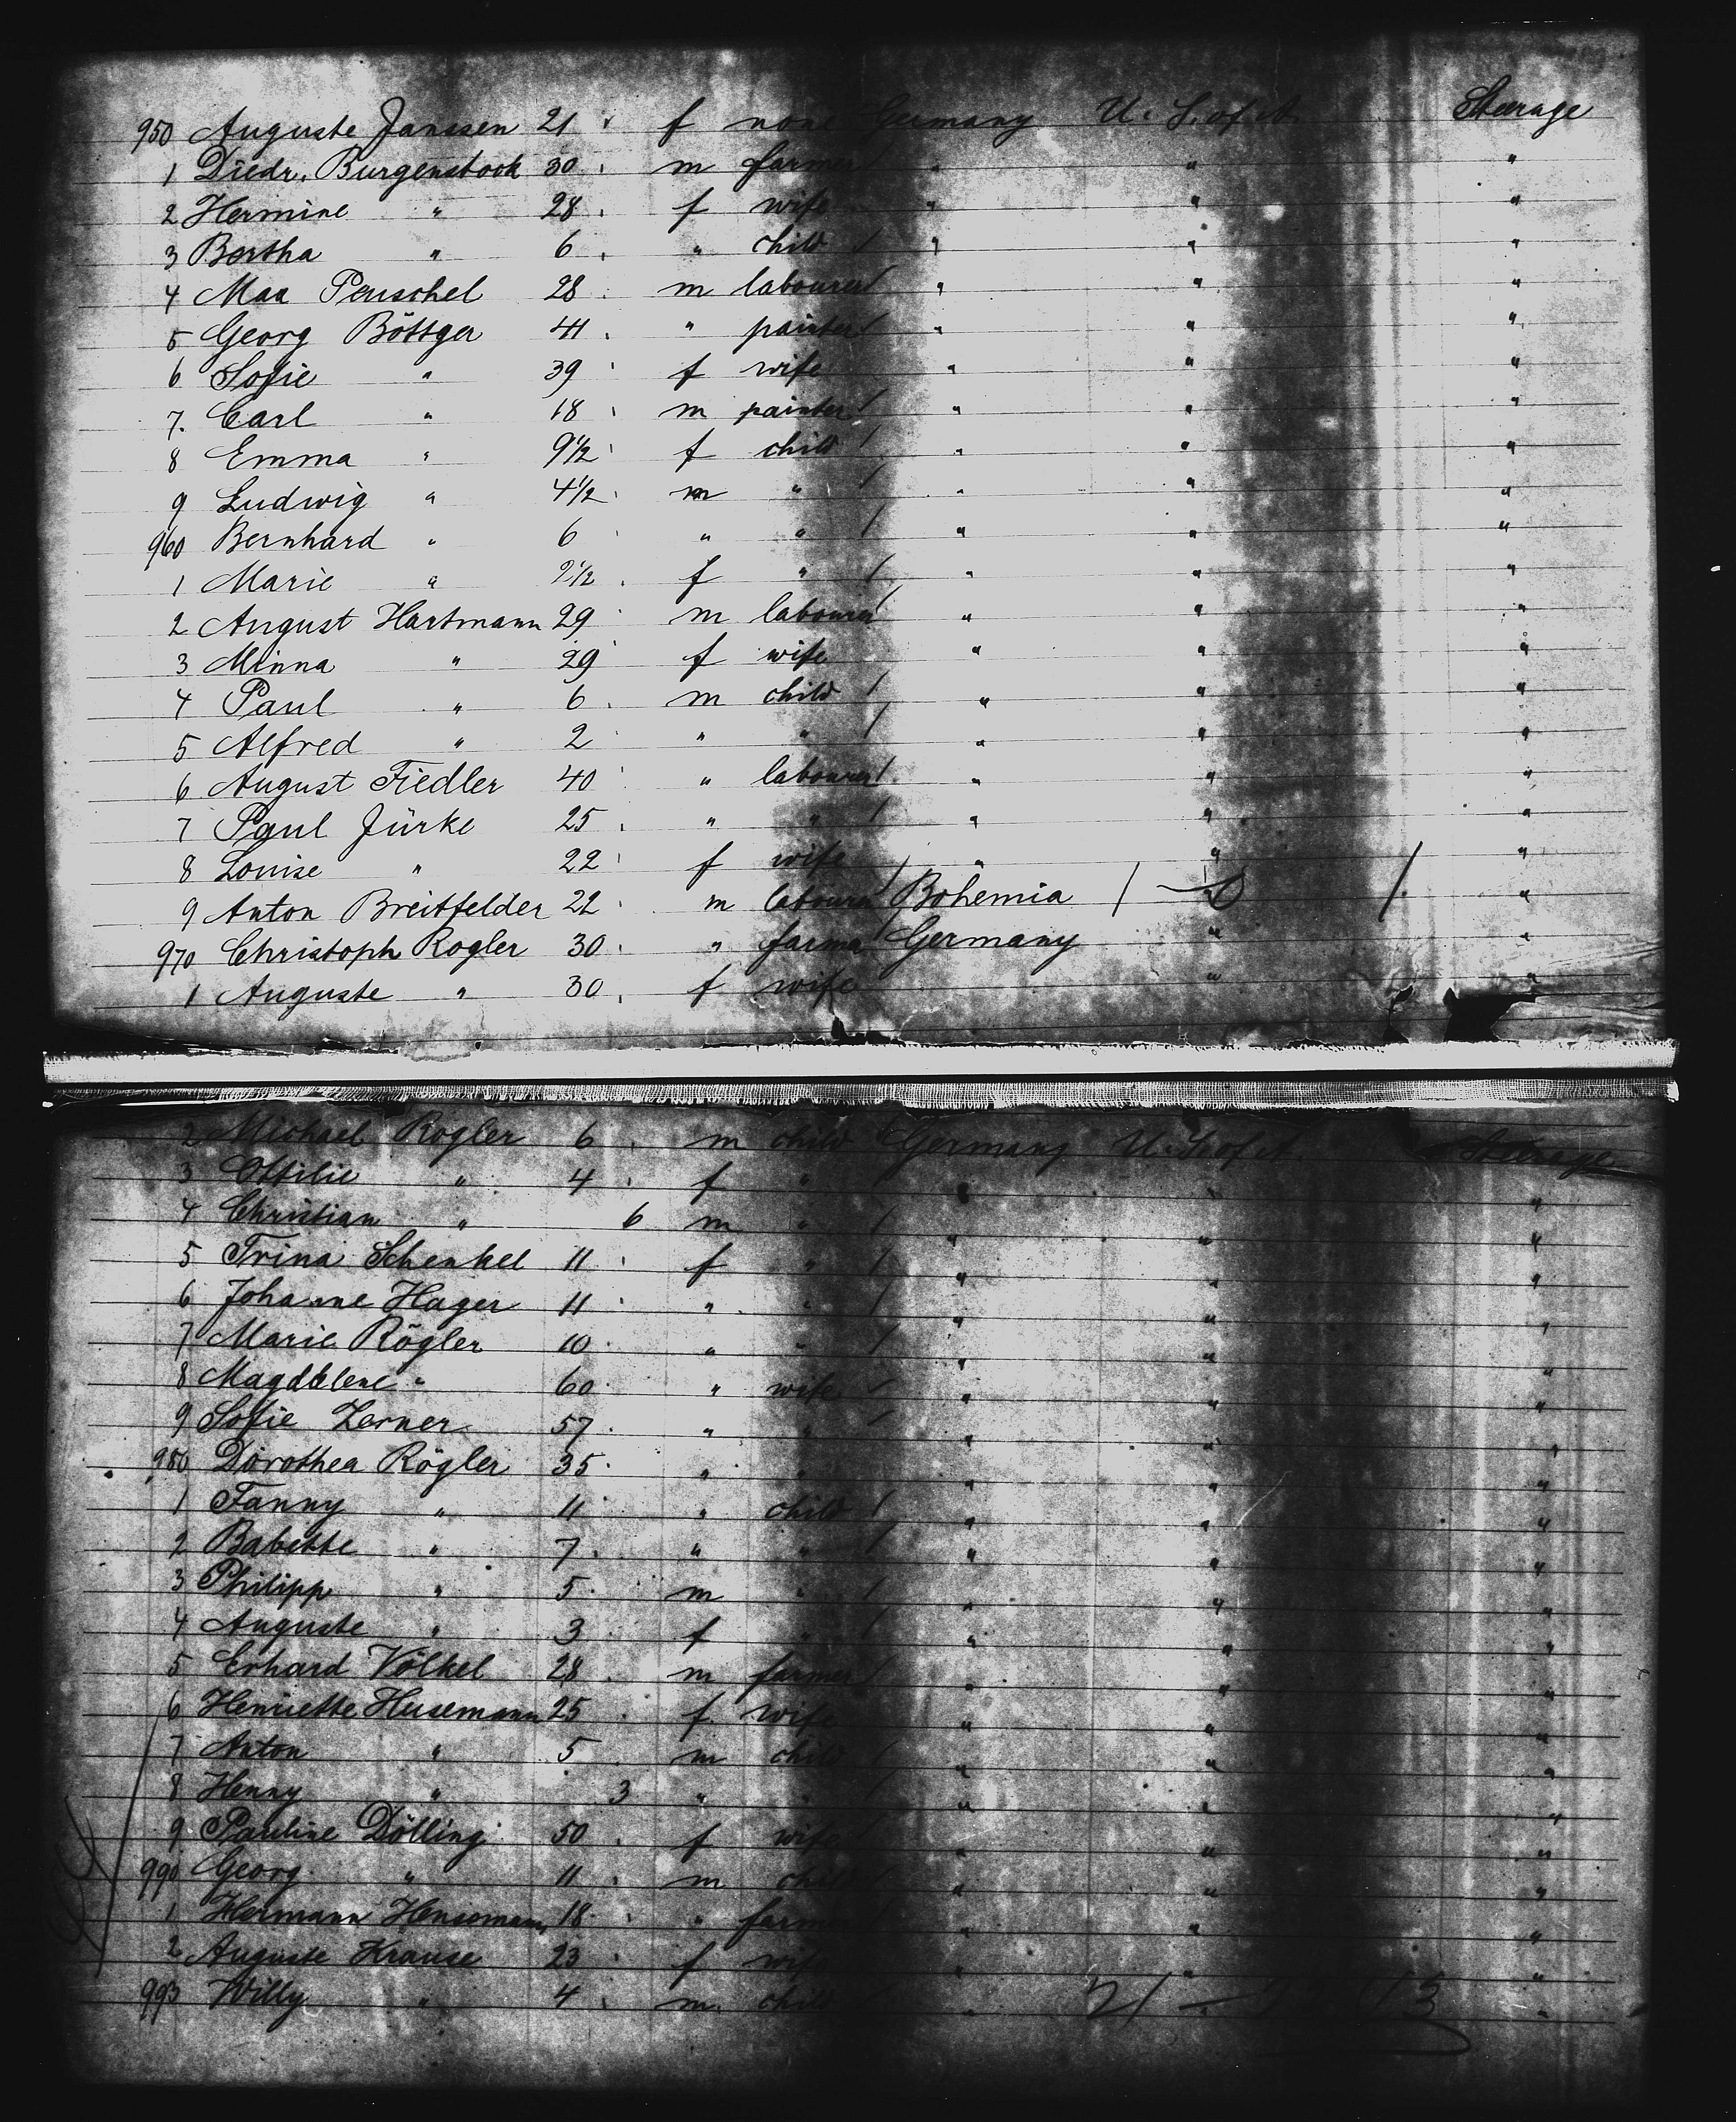 950 Auguste Janssen 21 f none Germany U. S. of A. Steerage
1 Diedr. Burgenstock 30 m farmer " " "
2 Hermine " 28 f wife " " "
3 Bertha " 6 " child " " "
4 Max Peuschel 28 m labourer " " "
5 Georg Böttger 41 " painter " " "
6 Sofie " 39 f wife " " "
7. Carl " 18 m painter " " "
8 Emma " 9 1/2 f child " " "
9 Ludwig " 4 1/2 m " " " "
960 Bernhard " 6 " " " " "
1 Marie " 2 1/2 f " " " "
2 August Hartmann 29 m labourer " " "
3 Minna " 29 f wife " " "
4 Paul " 6 m child " " "
5 Alfred " 2 " " " " "
6 August Fiedler 40 " labourer " " "
7 Paul Jürke 25 " " " " "
8 Louise " 22 f wife " " "
9 Anton Breitfelder 22 m labourer Bohemia " "
970 Christoph Rogler 30 " farmer Germany " "
1 Auguste " 30 f wife " "
2 Michael Rogler 6 m child Germany U. S. of A. Steerage
3 Ottilie " 4 f " " " "
4 Christian " 6 m " " " "
5 Trina Schenkel 11 f " " " "
6 Johanne Hager 11 " " " " "
7 Marie Rögler 10 " " " " "
8 Magdblene " 60 " wife " " "
9 Sofie Zerner 57 " " " " "
980 Dorothea Rögler 35 " " " " "
1 Fanny " 11 " child " " "
2 Babette " 7 " " " " "
3 Philipp " 5 m " " " "
4 Auguste " 3 f " " " "
5 Erhard Völkel 28 m farmer " " "
6 Henriette Husemann 25 f wife " " "
7 Anton " 5 m child " " "
8 Henny " 3 " " " " "
9 Pauline Dölling 50 f wife " " "
990 Georg " 11 m child " " "
1 Hermann Hensomann 18 " farmer " " "
2 Auguste Krause 23 f wife " " "
993 Willy " 4 m child " "